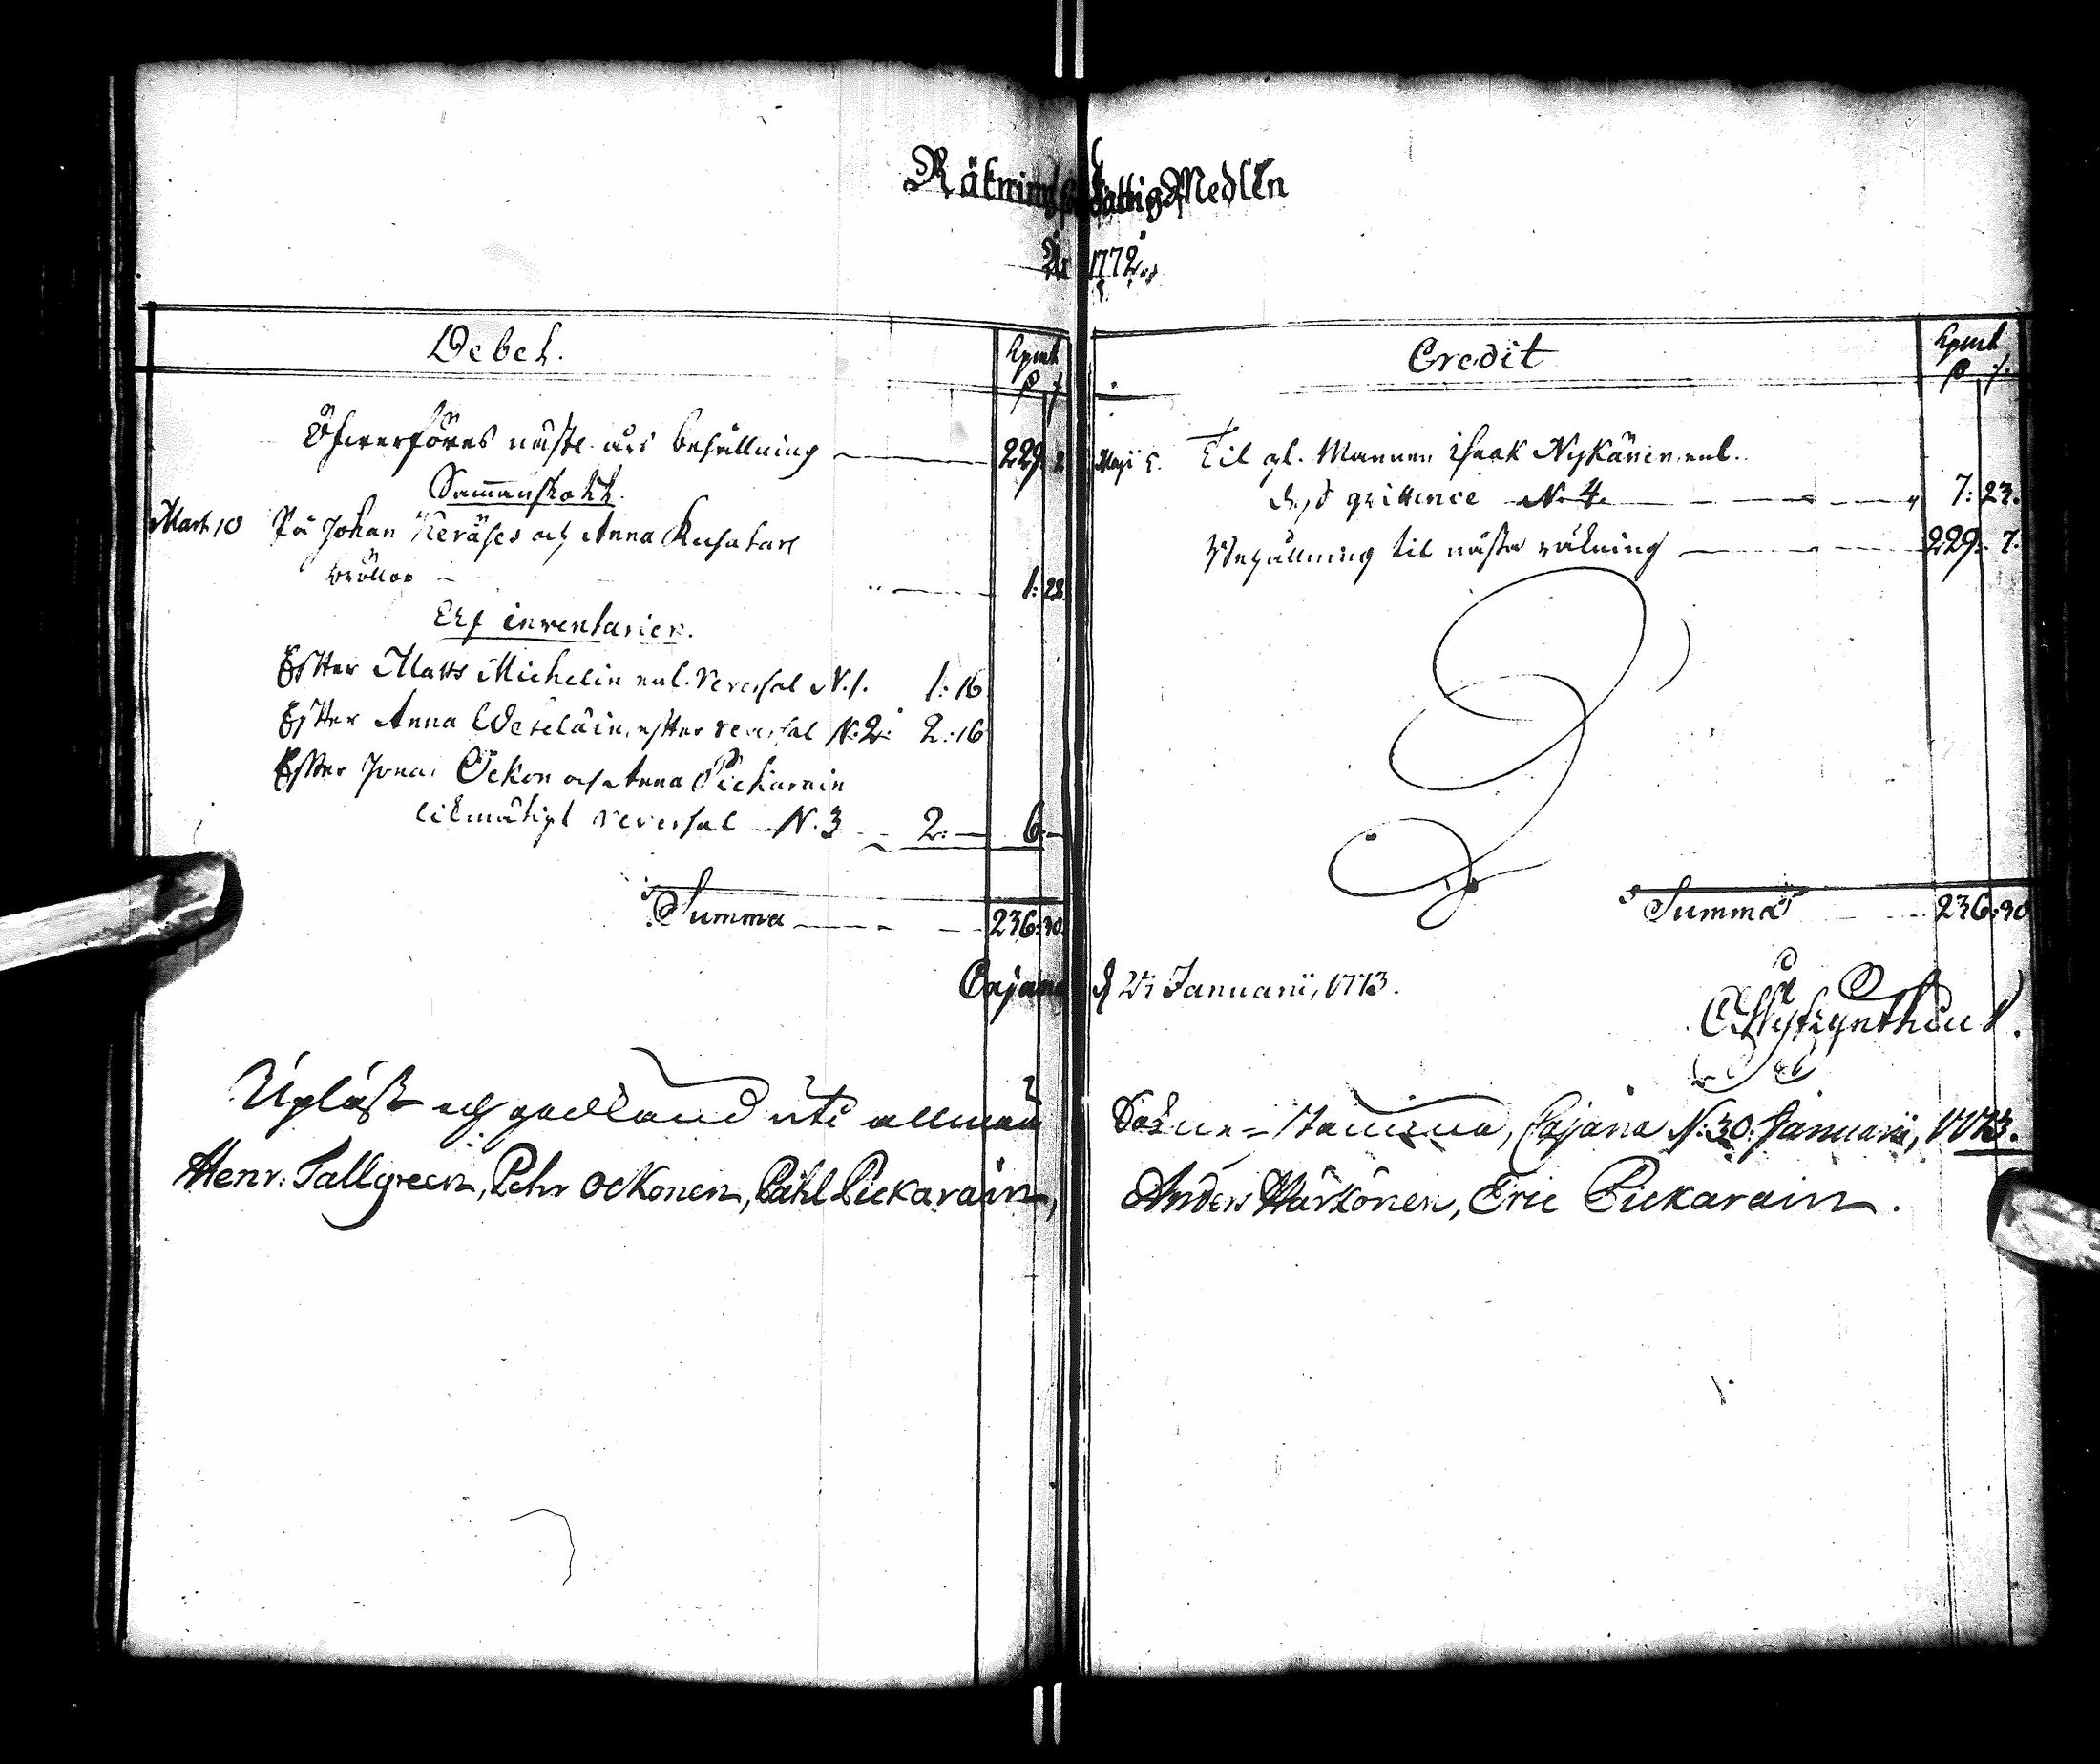 Räkning för Fattig Medlen
År 1772.
Debet.
Kpmt
Öfwerföres näste års behållning 229: 2
Sammanskott.
Mart. 10 På Johan Keräses och Anna
bröllop 1: 28
Erf inventarier.
Efter Matts Michelin enl. Reversal N. 1. 1: 16
Efter Anna Weteläin, efter reversal N: 2: 2: 16
Efter Jonas Ockon och Anna Pickarain
likmätigt reversal N. 3 2: — 6: —
Summa 236: 30
Credit
Kpmt
Maji 5. Til gl. Mannen Isaak Nykänen enl.
dess quittence N. 4. 7: 23.
Behållning til nästa räkning 229: 7.
Summa 236: 30
Cajana d. 27 Januarii, 1773.
Upläst och godkänd uti allmän Sokne-stämma, Cajana d. 30. Januarii, 1773.
Henr. Tallgreen, Pehr Ockonen, Påhl Pickarain, Anders Härkönen, Eric Pickarain.